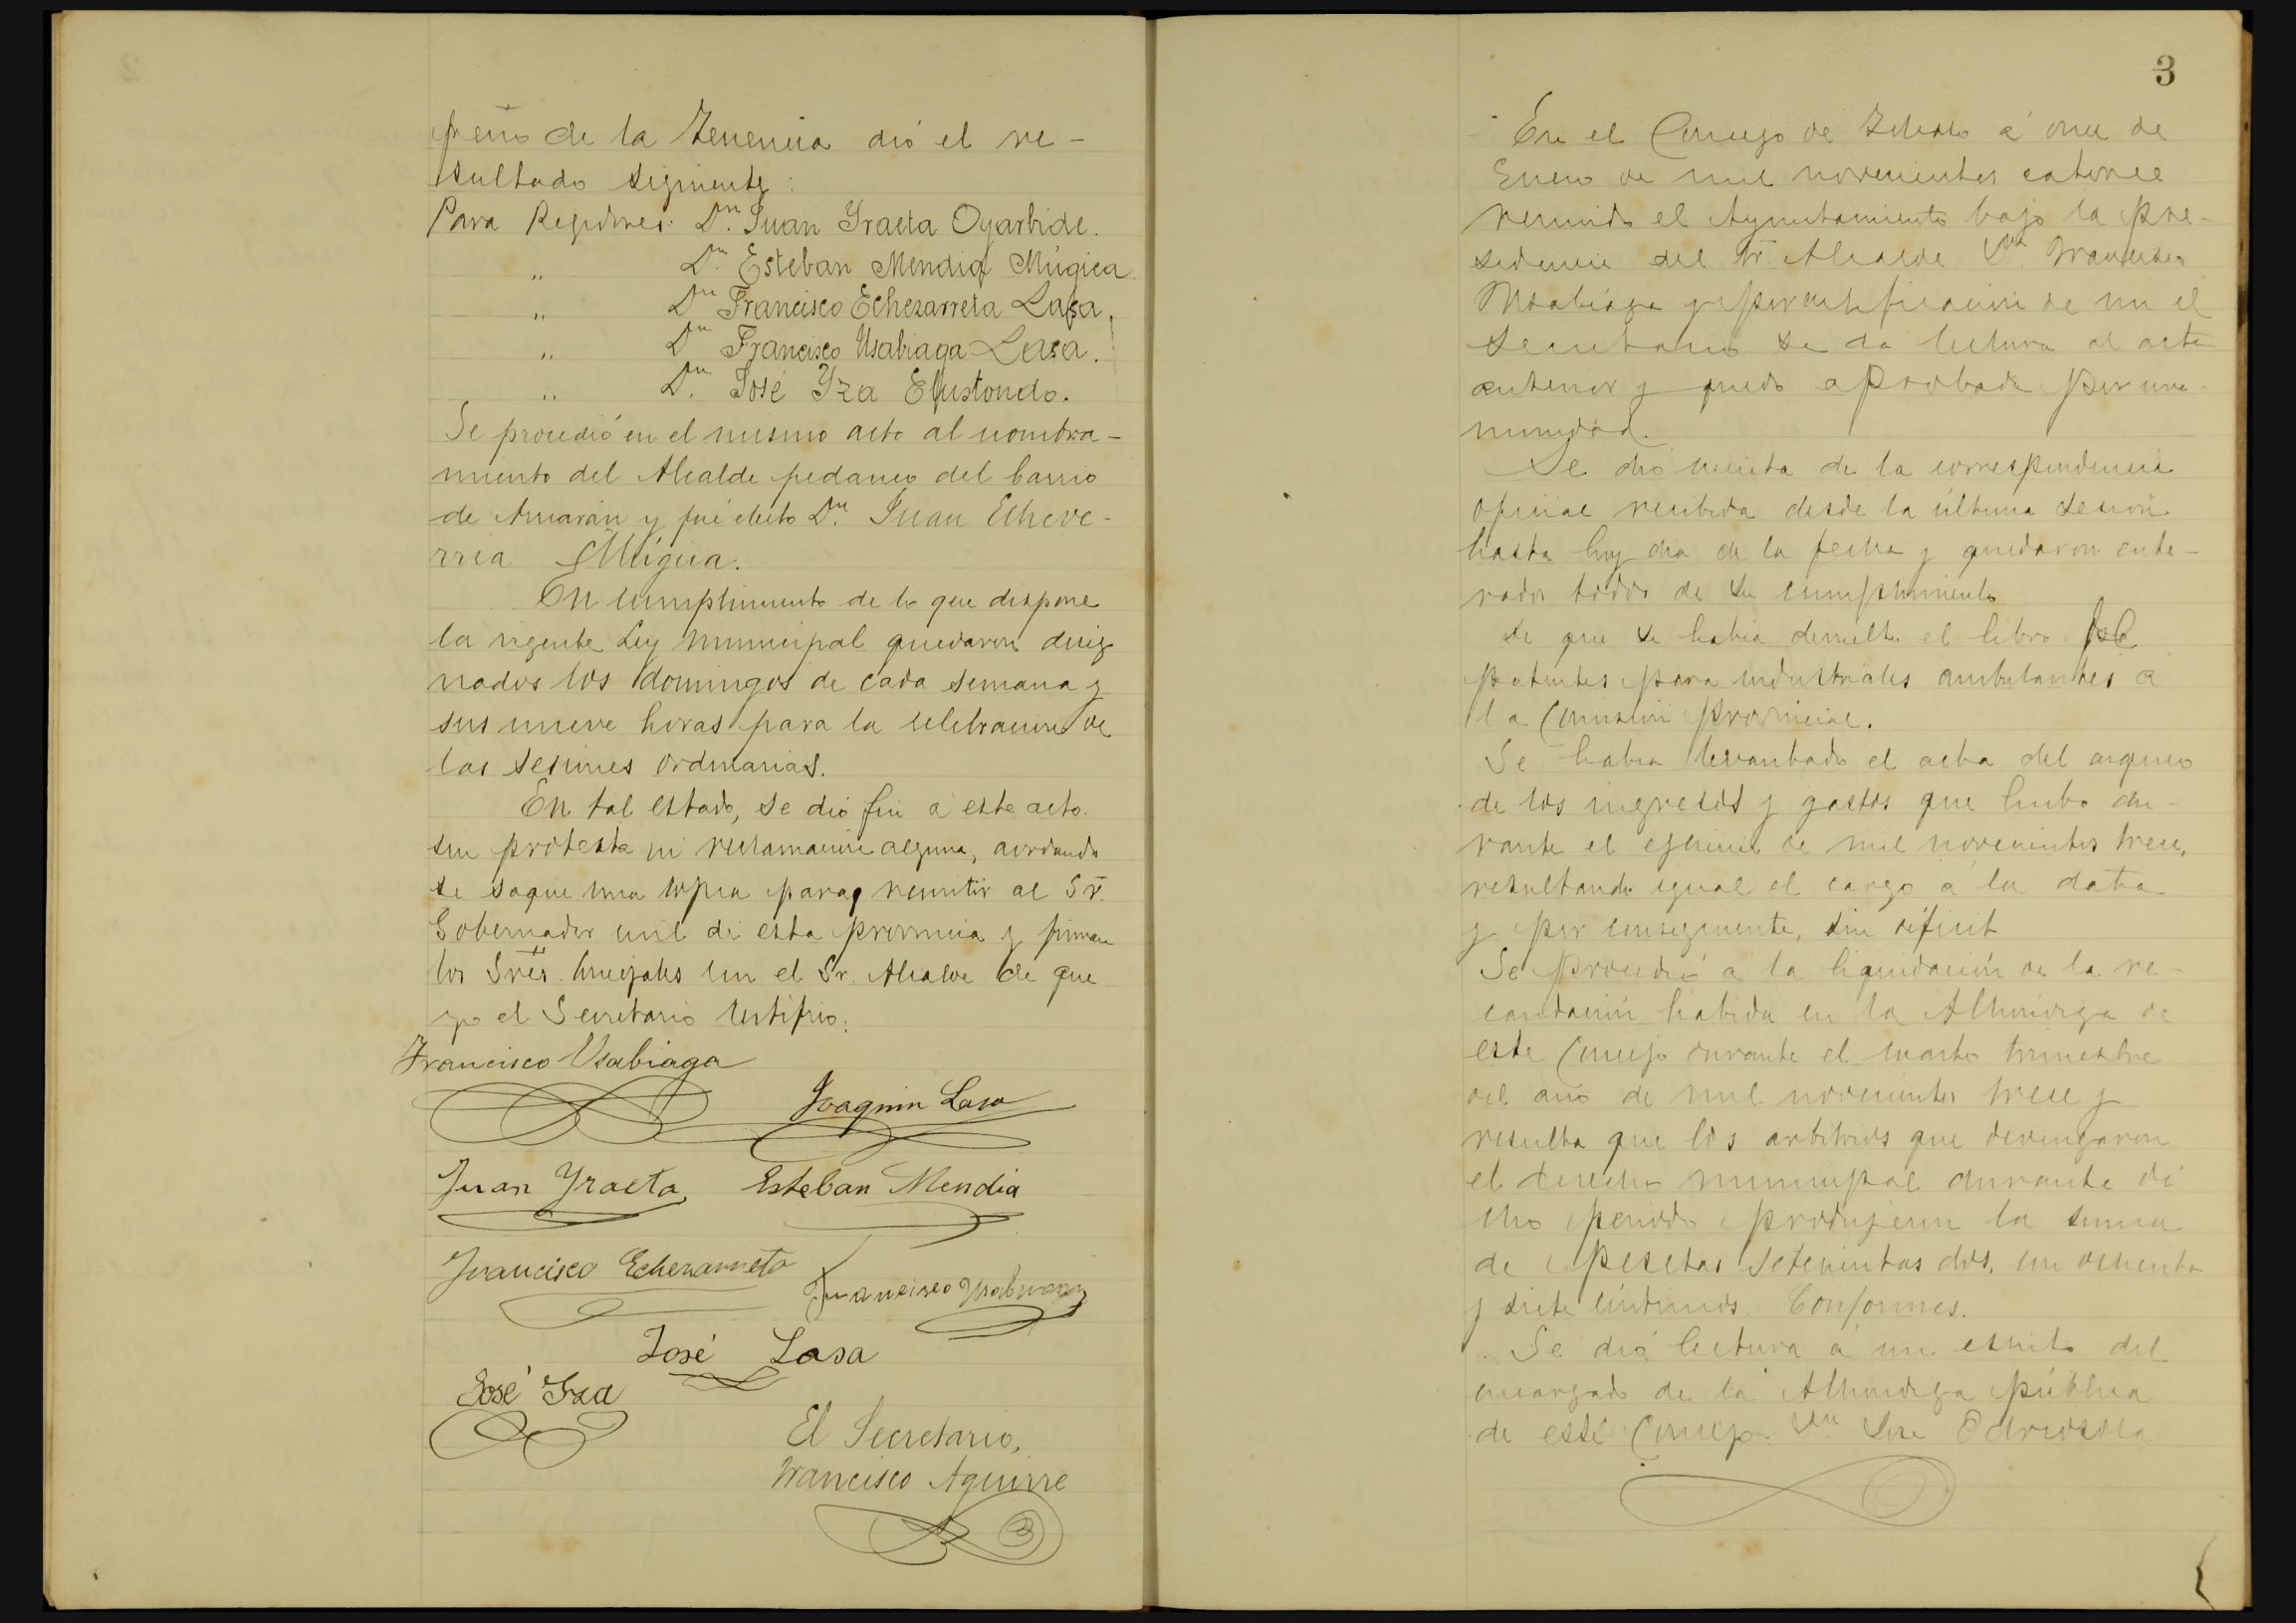 peño de la Tenencia dió el re-
sultado siguiente:
Para Regidores: Dn. Juan Yraeta Oyarbide.
" Dn. Esteban Mendia Múgica.
" Dn Francisco Echezarreta Lasa,
" Dn Francisco Usabiaga Lasa.
" Dn. José Yza Elustondo.
Se procedió en el mismo acto al nombra-
miento del Alcalde pedaneo del barrio
de Amarán y fué electo Dn. Juan Echeve-
rria Múgica.
En cumplimiento de lo que dispone
la vigente Ley Municipal quedaron desig
nados los domingos de cada semana y
sus nueve horas para la celebracion de
las sesiones ordinarias.
En tal estado, se dió fin á este acto.
sin protesta ni reclamacion alguna, acordando
se saque una copia para remitir al Sr.
Gobernador civil de esta provincia y firman
los Sres. Concejales con el Sr. Alcalde de que
yo el Secretario certifico.
Francisco Usabiaga
Joaquin Lasa
Juan Yraeta Esteban Mendia
Francisco Echezarreta
Francisco Usabiaga
José Lasa
José Yza
El Secretario,
Francisco Aguirre
3
En el Concejo de á once de
Enero de mil novecientos catorce
reunido el Ayuntamiento bajo la pre-
sidencia del Sr. Alcalde Dn. Francisco
Usabiaga y por certificacion de mi el
Secretario se da lectura al acta
anterior y quedo aprobada por una-
nimidad.
Se dió cuenta de la correspondencia
oficial recibida desde la última sesion
hasta hoy dia de la fecha y quedaron ente-
rados todos de su cumplimiento
de que se habia devuelto el libro
patentes para industriales ambulantes á
la Comision provincial.
Se habia levantado el acta del arqueo
de los ingresos y gastos que hubo du-
rante el ejercicio de mil novecientos trece,
resultando igual el cargo á la data
y por consiguiente, sin déficit
Se procedió á la liquidación de la re-
caudación habida en la Alhóndiga de
este Concejo durante el cuarto trimestre
del año de mil novecientos trece y
resulta que los arbitrios que devengaron
el derecho municipal durante di
cho periodo produjeron la suma
de pesetas setecientas dos, con ochenta
y siete céntimos. Conformes.
Se dió lectura á un escrito del
encargado de la Alhondiga pública
de este Concejo Dn. José Odriozola